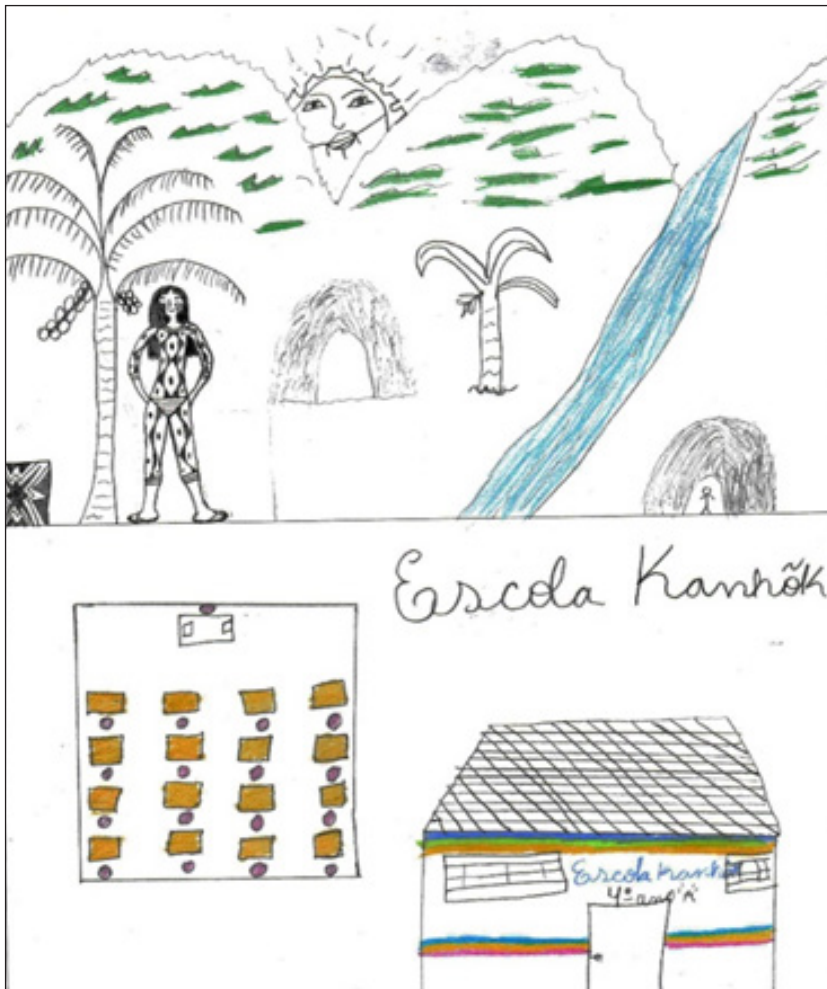 Escola Kanhõk
Escola Kanhõk
4º ano "A"